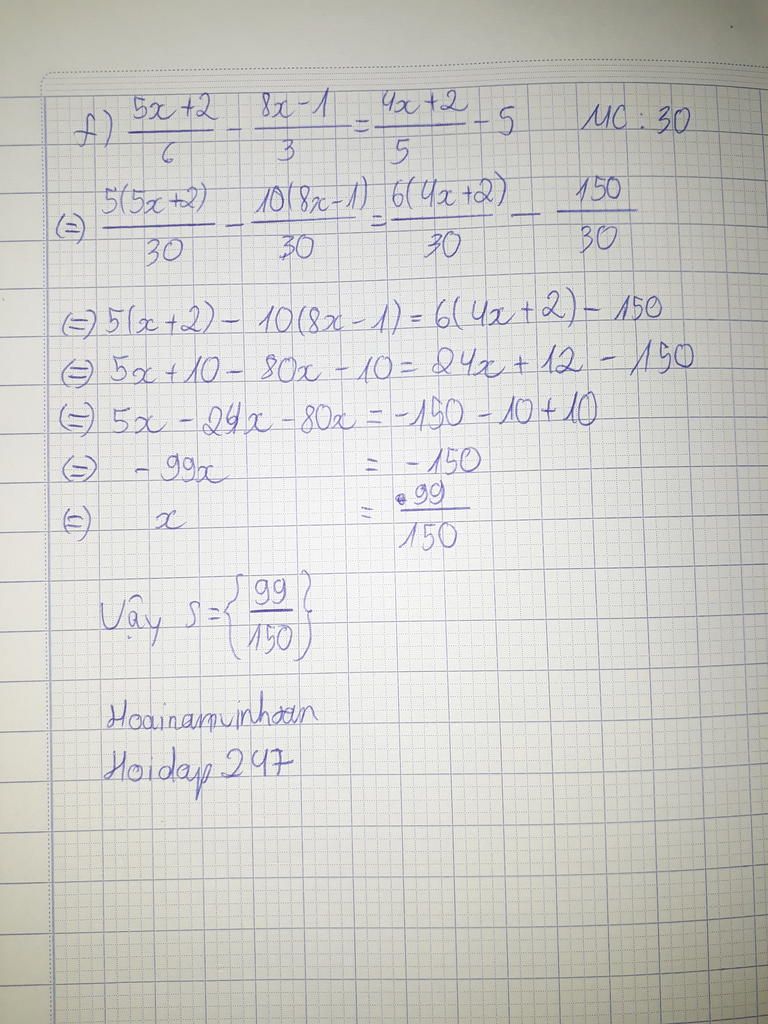 f) (5x+2)/6 - (8x-1)/3 = (4x+2)/5 - 5 MC : 30
(=) 5(5x+2)/30 - 10(8x-1)/30 = 6(4x+2)/30 - 150/30
(=) 5(x+2) - 10(8x-1) = 6(4x+2) - 150
(=) 5x+10 - 80x - 10 = 24x + 12 - 150
(=) 5x - 24x - 80x = -150 - 10 + 10
(=) - 99x = - 150
(=) x = 99/150
Vậy S = {99/150}
Hoainamvinhoan
Hoidap 247